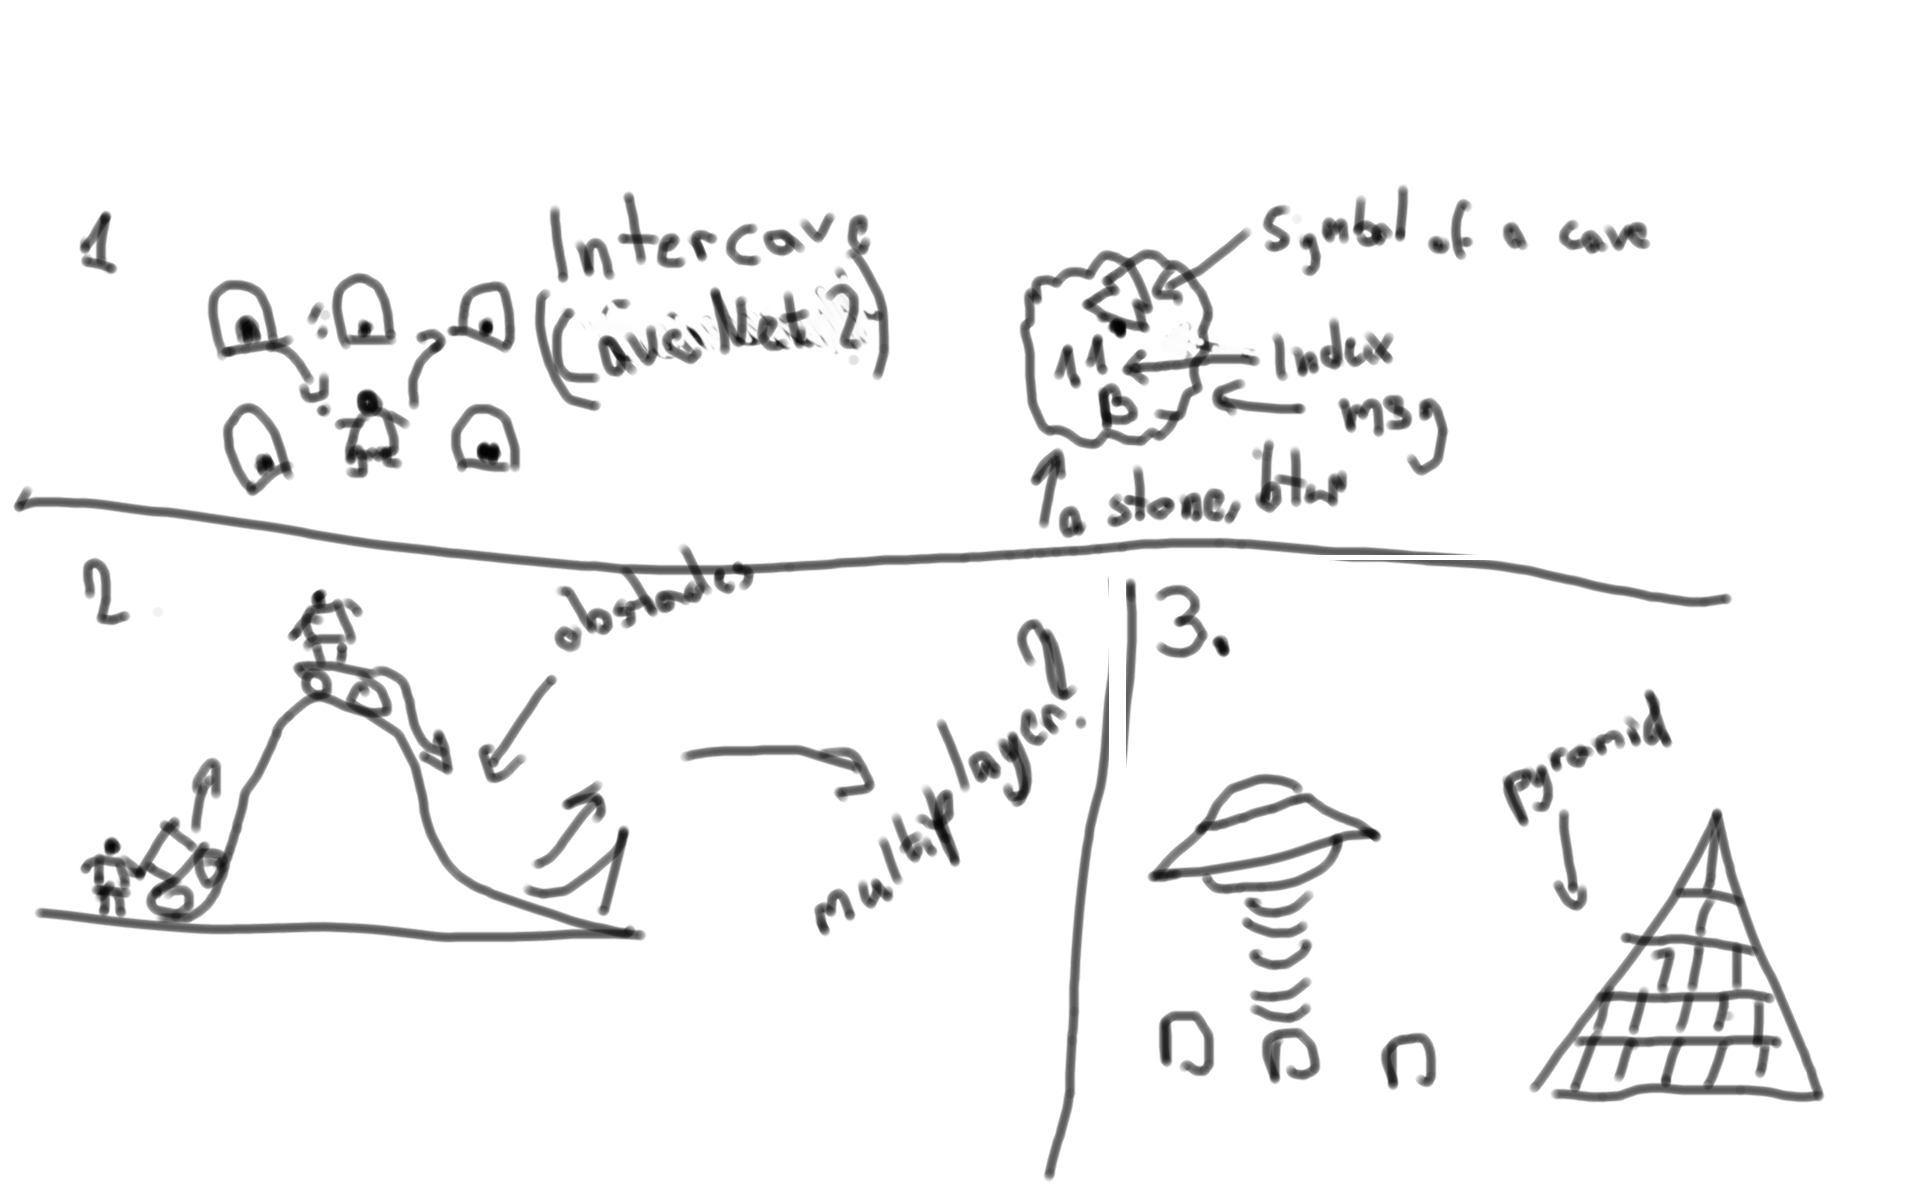 1
Intercave
(CaveNet?)
Symbol of a cave
11
Index
B
msg
a stone, btw
2
obstacles
multiplayer?
3.
pyramid